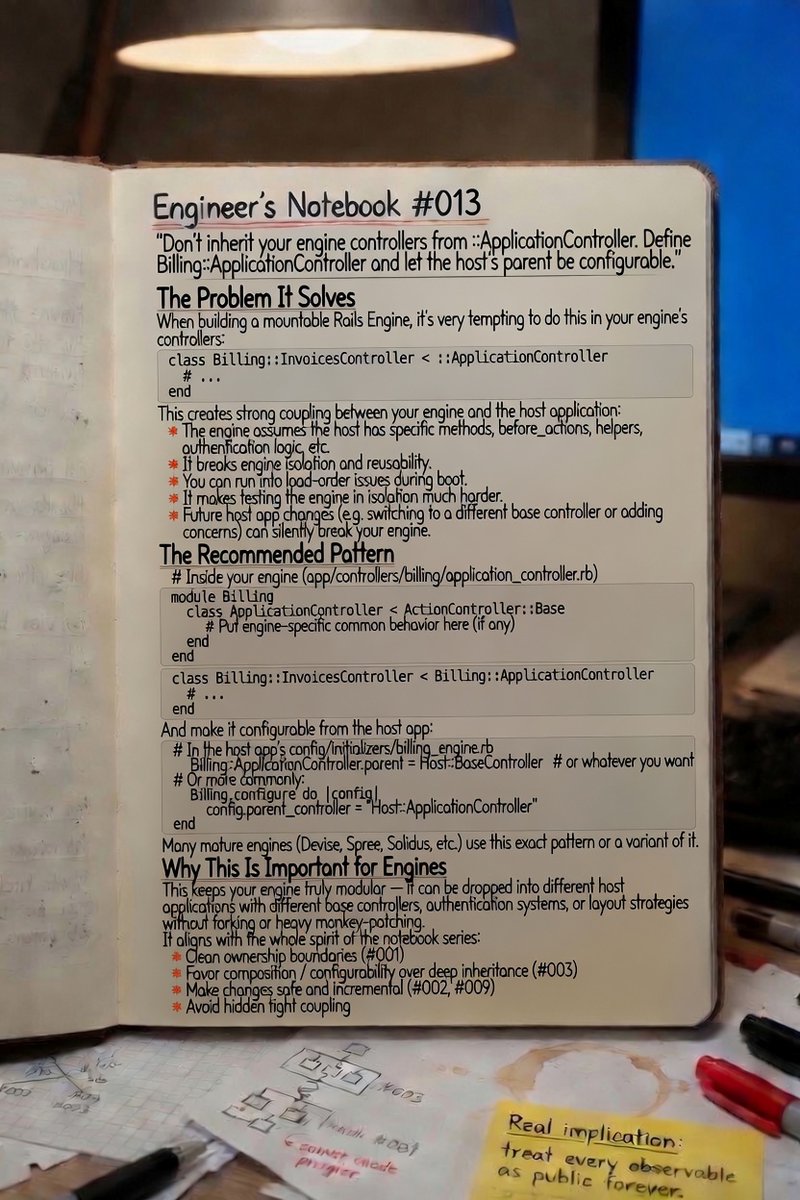 Engineer's Notebook #013
"Don't inherit your engine controllers from ::ApplicationController. Define
Billing::ApplicationController and let the host's parent be configurable."
The Problem It Solves
When building a mountable Rails Engine, it's very tempting to do this in your engine's
controllers:
class Billing::InvoicesController < ::ApplicationController
# ...
end
This creates strong coupling between your engine and the host application:
* The engine assumes the host has specific methods, before_actions, helpers,
authentication logic, etc.
* It breaks engine isolation and reusability.
* You can run into load-order issues during boot.
* It makes testing the engine in isolation much harder.
* Future host app changes (e.g. switching to a different base controller or adding
concerns) can silently break your engine.
The Recommended Pattern
# Inside your engine (app/controllers/billing/application_controller.rb)
module Billing
class ApplicationController < ActionController::Base
# Put engine-specific common behavior here (if any)
end
end
class Billing::InvoicesController < Billing::ApplicationController
# ...
end
And make it configurable from the host app:
# In the host app's config/initializers/billing_engine.rb
Billing::ApplicationController.parent = Host::BaseController # or whatever you want
# Or more commonly:
Billing.configure do |config|
config.parent_controller = "Host::ApplicationController"
end
Many mature engines (Devise, Spree, Solidus, etc.) use this exact pattern or a variant of it.
Why This Is Important for Engines
This keeps your engine truly modular — it can be dropped into different host
applications with different base controllers, authentication systems, or layout strategies
without forking or heavy monkey-patching.
It aligns with the whole spirit of the notebook series:
* Clean ownership boundaries (#001)
* Favor composition / configurability over deep inheritance (#003)
* Make changes safe and incremental (#002, #009)
* Avoid hidden tight coupling
#003
Real implication:
treat every observable
as public forever.